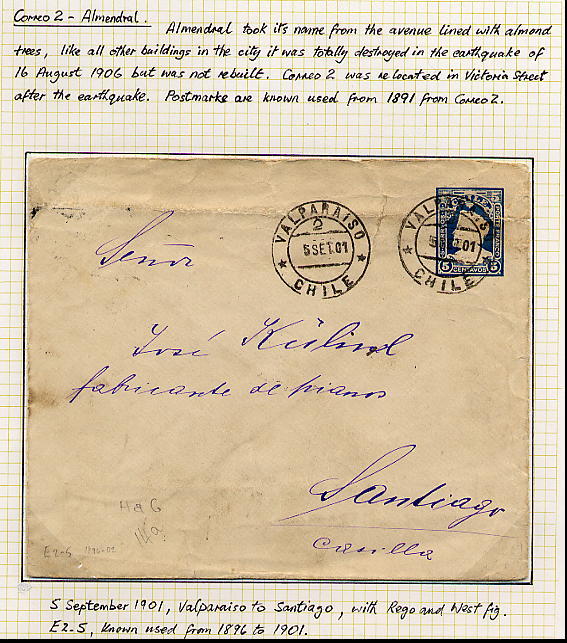 Correo 2 - Almendral.
Almendral took its name from the avenue lined with almond
trees, like all other buildings in the city it was totally destroyed in the earthquake of
16 August 1906 but was not rebuilt. Correo 2 was relocated in Victoria Street
after the earthquake. Postmarks are known used from 1891 from Correo 2.
VALPARAISO
2
5 SET. 01
CHILE
VALPARAIS
01
CHILE
5 CENTAVOS 5
Señor
José
fabricante de pianos
Santiago
Casilla
H & G
E2-5 1896-01
5 September 1901, Valparaiso to Santiago, with Rego and West fig.
E2-5, Known used from 1896 to 1901.